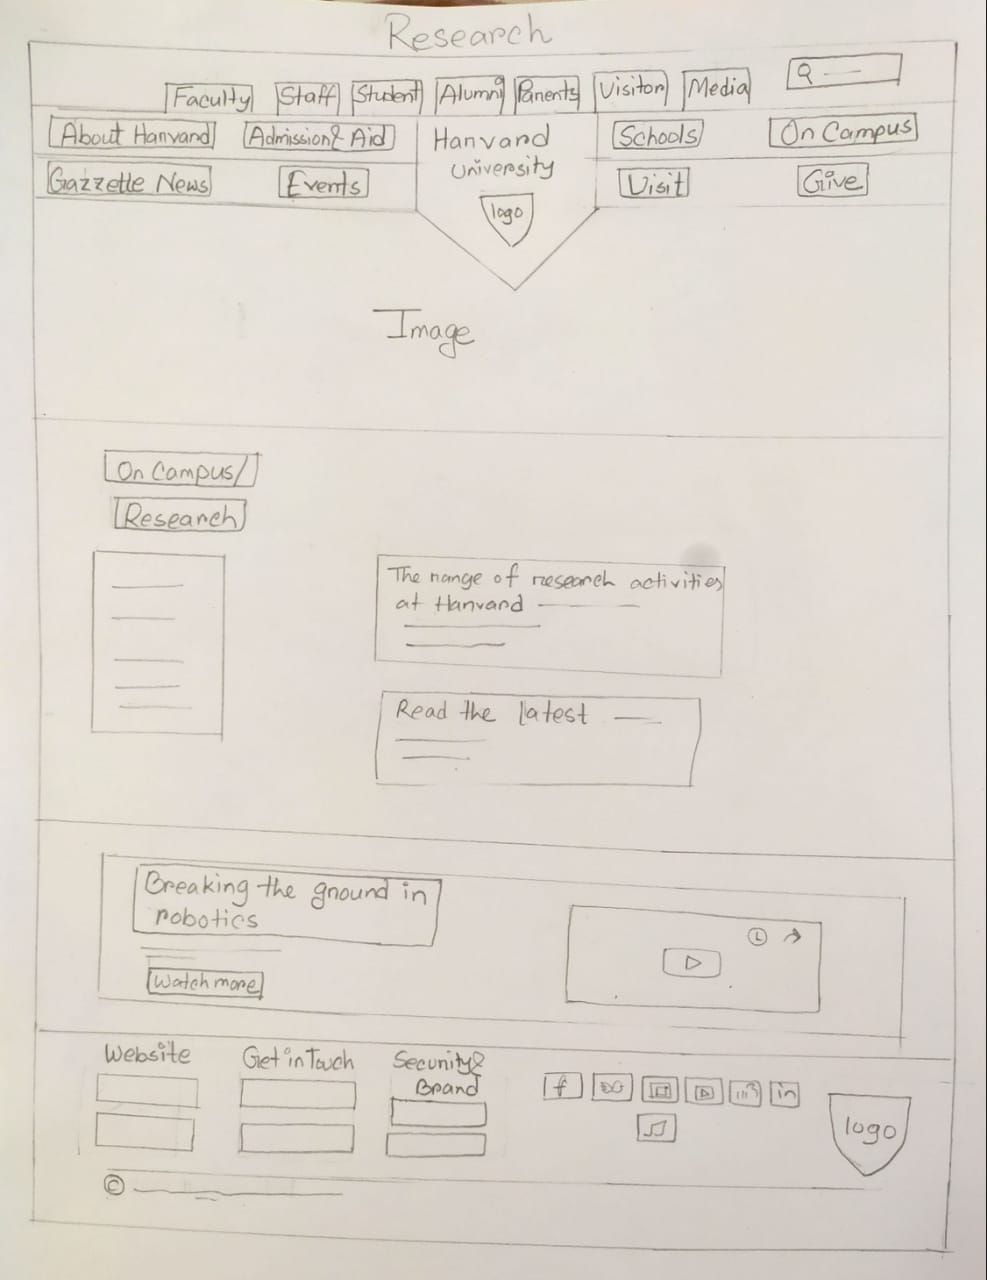 Research
Faculty Staff Student Alumni Parents Visitor Media
About Harvard Admission& Aid Harvard University Schools On Campus
Gazzette News Events logo Visit Give
Image
On Campus/
Research
The range of research activities
at Harvard
Read the latest
Breaking the ground in
robotics
Watch more
Website Get in Touch Security&
Brand
f in
logo
©